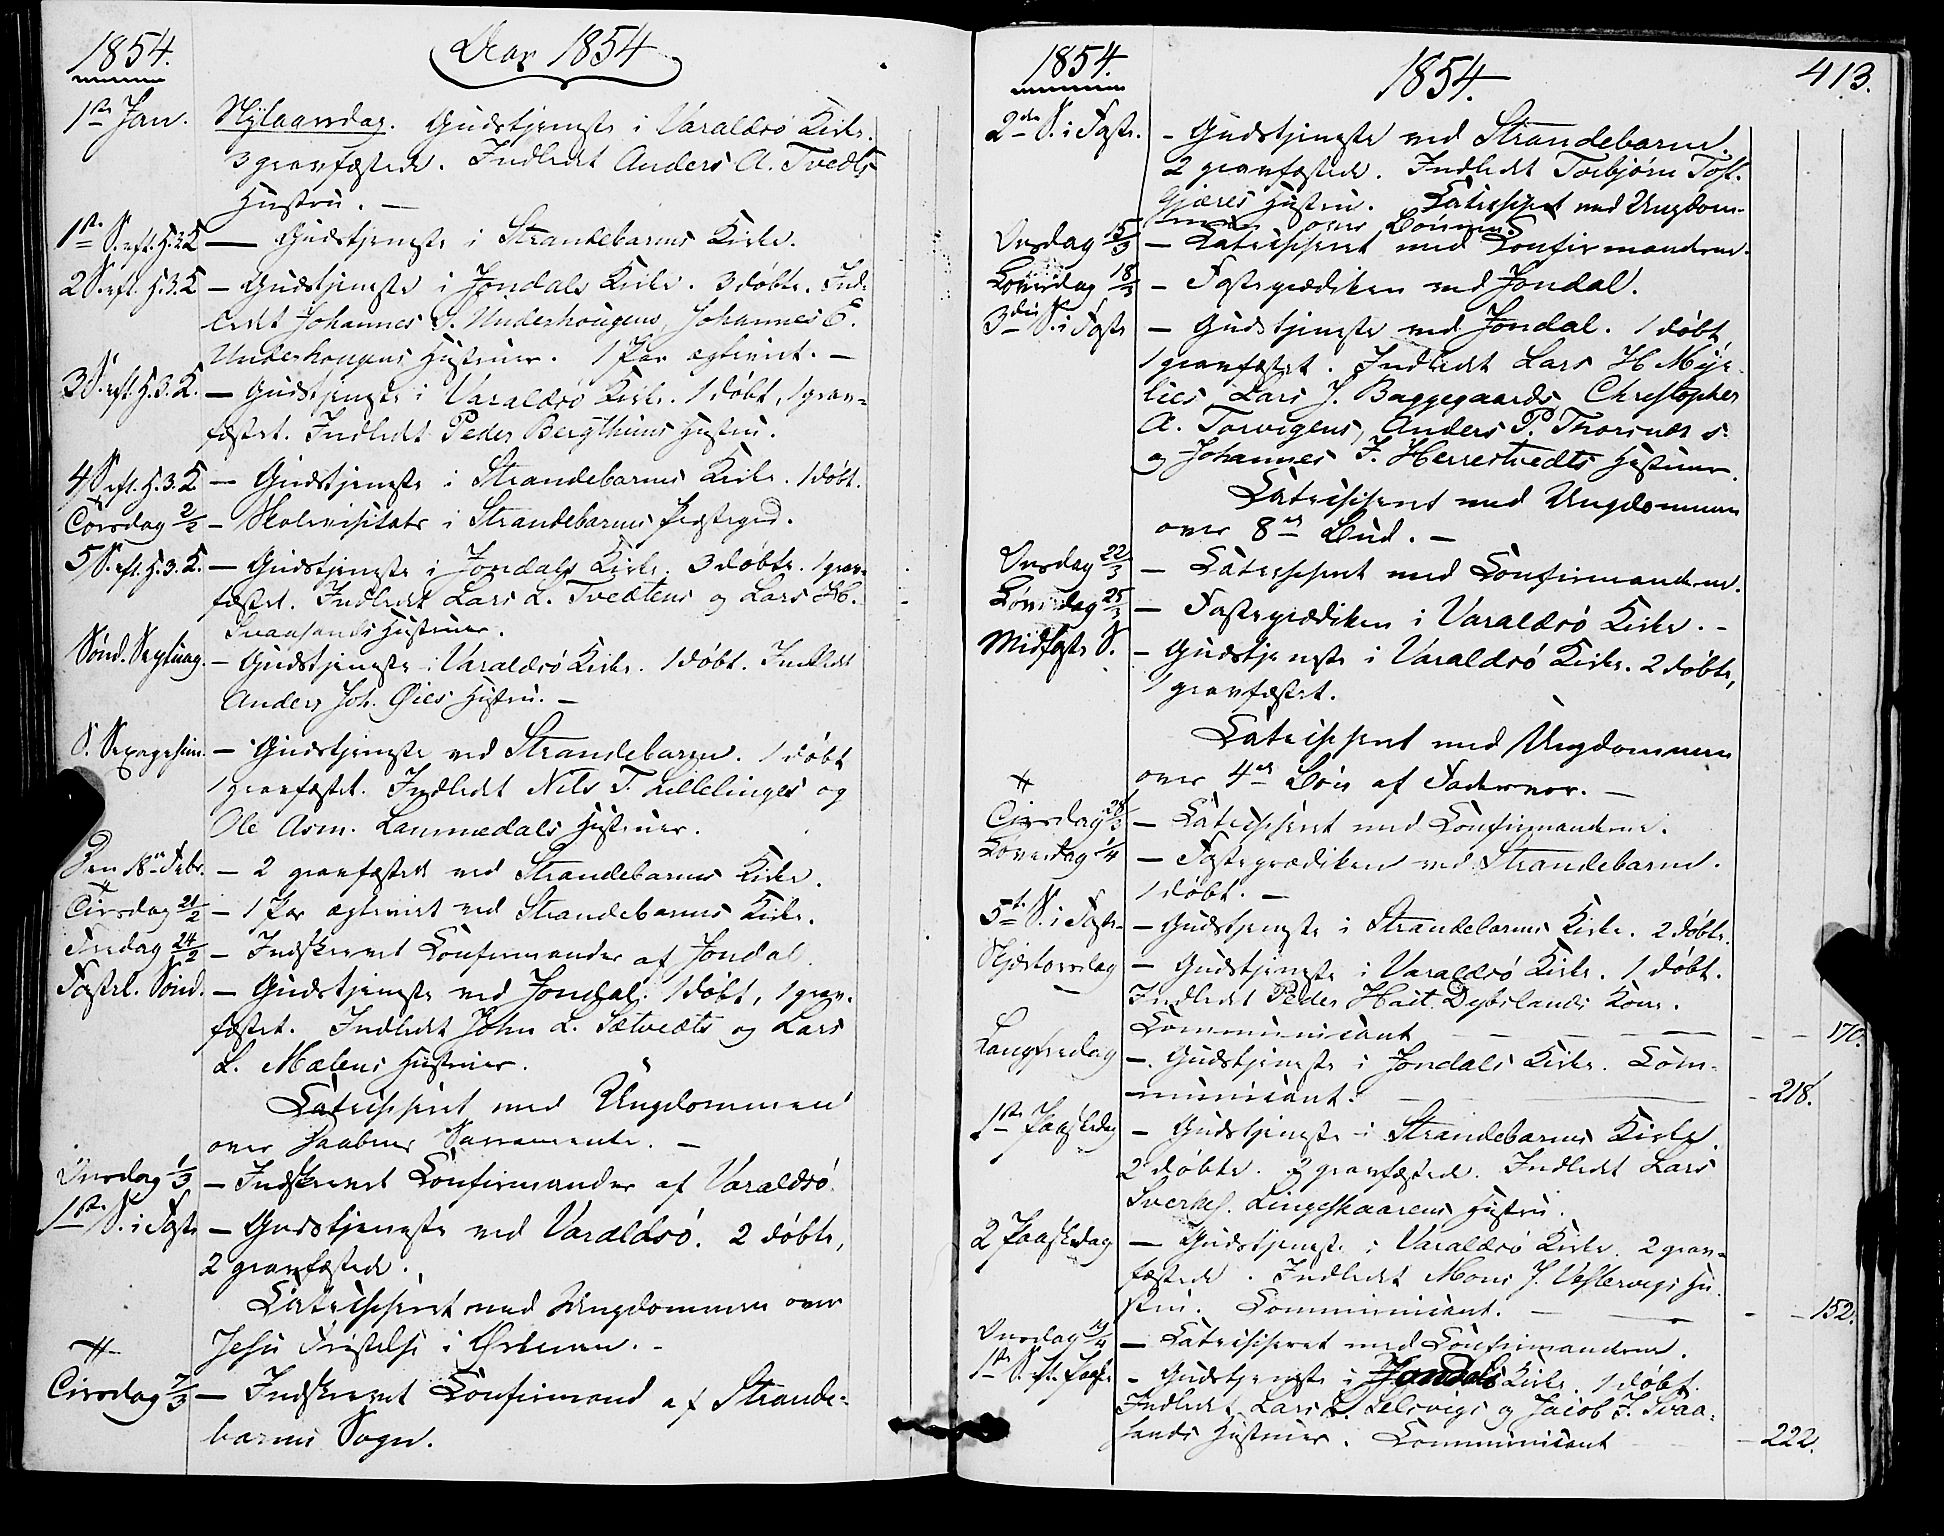 1854.
Aar 1854
1ste Jan. Nÿtaarsdag. Gudstjeneste i Varaldsö Kirke.
3 gravfæstede. Indledet Anders A. Tvedts
Hustru. —
1ste S. eft. H.3.K — Gudstjeneste i Strandebarms Kirke.
2 S. eft. H.3.K — Gudstjeneste i Jondals Kirke. 3 döbte. Ind-
ledet Johannes S. Underhougens, Johannes E.
Underhougens Hustruer. 1 Par ægteviet. —
3 S. eft. H.3.K. — Gudstjeneste i Varaldsö Kirke. 1 döbt, 1 grav-
fæstet. Indledet Peder Bergthuns Hustru.
4 S. eft. H.3.K — Gudstjeneste i Strandebarms Kirke. 1 döbt.
Torsdag 2/2 — Skolevisitats i Strandebarms Præstegd.
5 S. eft. H.3.K. — Gudstjeneste i Jondals Kirke. 3 döbte. 1 grav-
fæstet. Indledet Lars L. Tvedtens og Lars H.
Svaasands Hustruer.
Sönd. Septuag. — Gudstjeneste i Varaldsö Kirke. 1 döbt. Indledet
Anders Joh. Öies Hustru. —
S. Sexagesim. — Gudstjeneste ved Strandebarm. 1 döbt
1 gravfæstet. Indledet Nils T. Lillelinges og
Ole Asm. Lammedals Hustruer.
Den 18de Febr. — 2 gravfæstede ved Strandebarms Kirke.
Tirsdag 21/2 — 1 Par ægteviet ved Strandebarms Kirke.
Fredag 24/2 — Indskrevet Confirmander af Jondal.
Fastel. Sönd. — Gudstjeneste ved Jondal. 1 döbt, 1 grav-
fæstet. Indledet John L. Sætvedts og Lars
L. Mælens Hustruer.
Catechiseret med Ungdommen
over Daabens Sacramente. —
Onsdag 1/3 — Indskrevet Confirmander af Varaldsö.
1ste S. i Faste — Gudstjeneste ved Varaldsö. 2 döbte,
2 gravfæstede.
Catechiseret med Ungdommen over
Jesu Fristelse i Ørkenen. —
Tirsdag 7/3 — Indskrevet Confirmand af Strande-
barms Sogn.
1854.
1854.
413.
2den S. i Faste. — Gudstjeneste ved Strandebarm.
2 gravfæstede. Indledet Torbjörn Tost.
Gjæres Hustru. Catechiseret med Ungdom-
men over Bönnen
Onsdag 15/3 — Catechiseret med Confirmanderne.
Löverdag 18/3 — Fasteprædiken ved Jondal.
3die S. i Faste — Gudstjeneste ved Jondal. 1 döbt,
1 gravfæstet. Indledet Lars H. Myk-
lies, Lars J. Baggegaards, Christopher
A. Torvigens, Anders P. Thorsnæs's
og Johannes J. Herrestvedts Hustruer.
Catechiseret med Ungdommen
over 8de Bud. —
Onsdag 22/3 — Catechiseret med Confirmanderne.
Löverdag 25/3 — Fasteprædiken i Varaldsö Kirke. —
Midfaste S. — Gudstjeneste i Varaldsö Kirke. 2 döbte,
1 gravfæstet.
Catechiseret med Ungdommen
over 4de Bön af Fadervor. —
Tirsdag 28/3 — Catechiseret med Confirmanderne.
Löverdag 1/4 — Fasteprædiken ved Strandebarm.
1 döbt. —
5te S. i Faste — Gudstjeneste i Strandebarms Kirke. 2 döbte.
Skjertorsdag — Gudstjeneste i Varaldsö Kirke. 1 döbt.
Indledet Peder Hait. Dybslands Kone.
Communicant — 170.
Langfredag — Gudstjeneste i Jondals Kirke. Com-
municant: — 218.
1ste Paaskedag — Gudstjeneste i Strandebarms Kirke.
2 döbte. 3 gravfæstede. Indledet Lars
Sverkes. Lingeskaarens Hustru.
2 Paaskedag — Gudstjeneste i Varaldsö Kirke. 2 grav-
fæstede. Indledet Mons J. Vestervigs Hu-
stru. Communicant. — 152.
Onsdag 19/4 — Catechiseret med Confirmanderne.
1ste S. eft. Paaske — Gudstjeneste i Jondals Kirke. 1 döbt.
Indledet Lars L. Selsvigs og Jacob J. Svaa-
sands Hustruer. Communicant — 222.